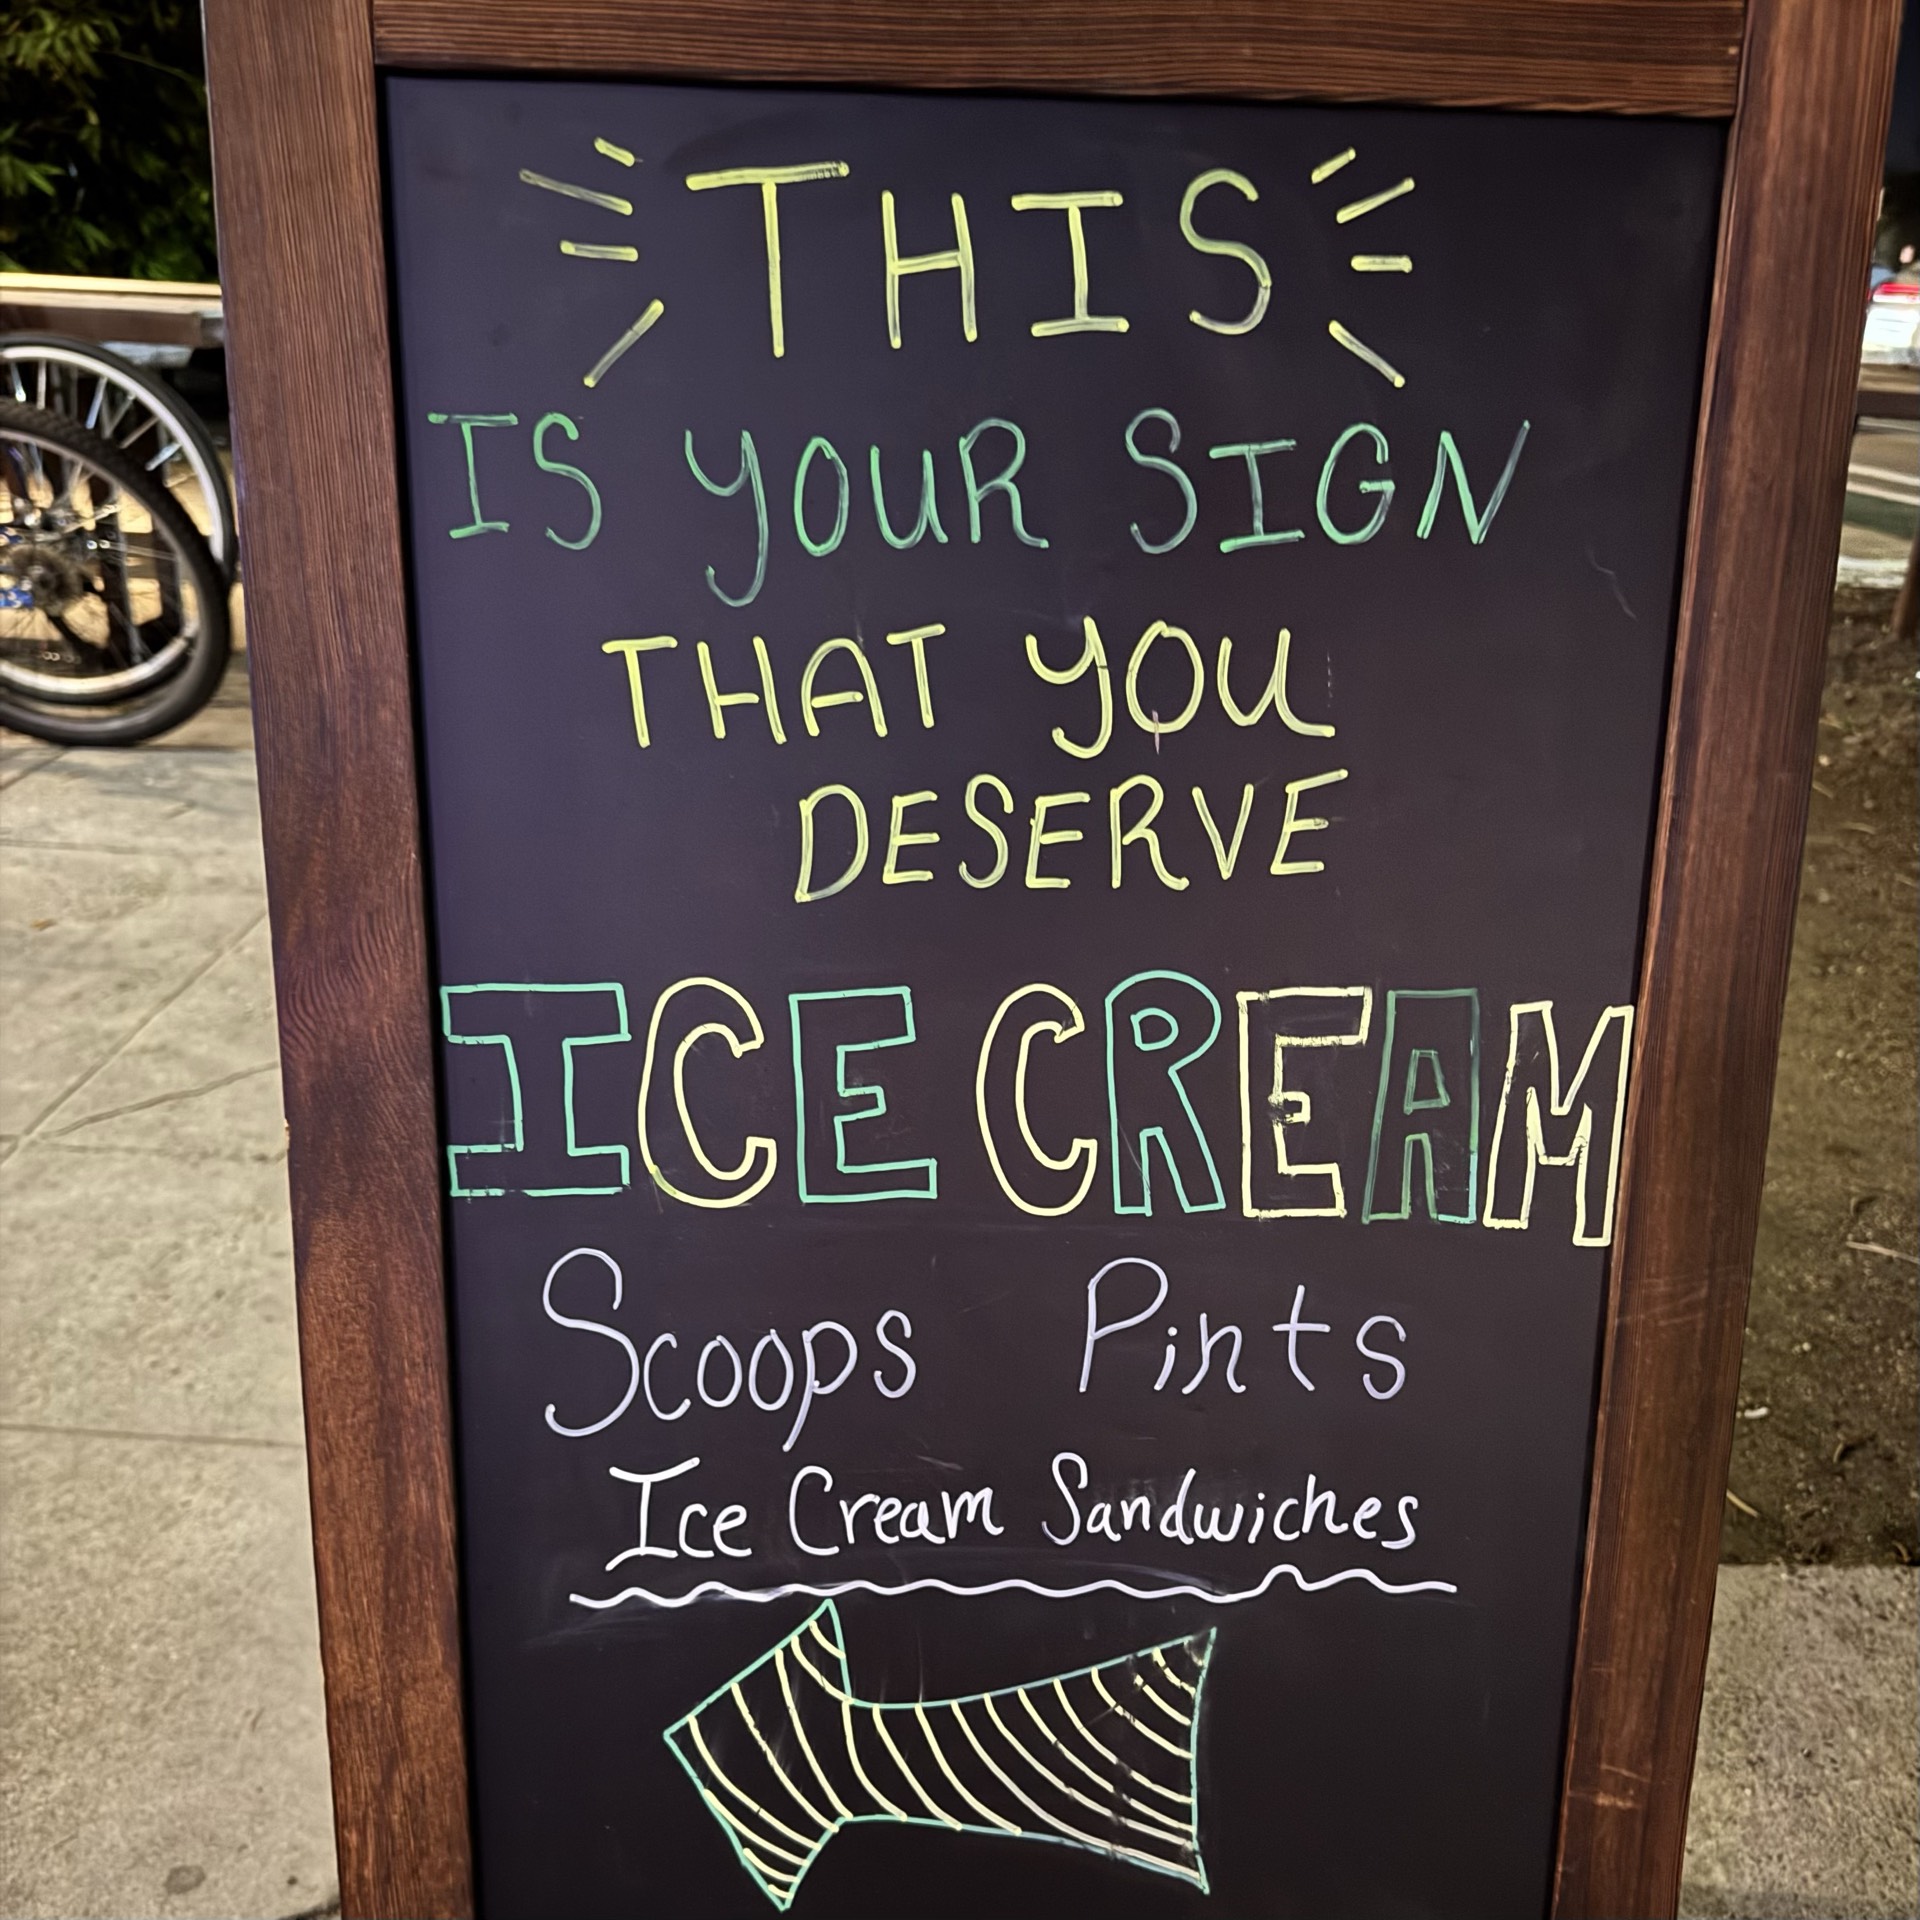 THIS
IS YOUR SIGN
THAT YOU
DESERVE
ICE CREAM
Scoops Pints
Ice Cream Sandwiches